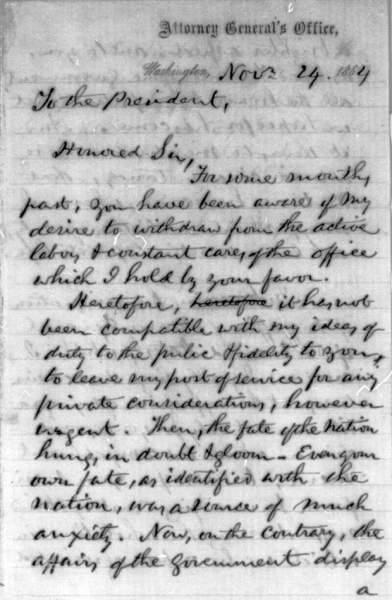 Attorney General's Office,
Washington, Novr. 24. 1864
To the President,
Honored Sir,
For some months
past, you have been aware of my
desire to withdraw from the active
labors & constant cares of the office
which I hold by your favor.
Heretofore, heretofore it has not
been compatible with my ideas of
duty to the public & fidelity to you,
to leave my post of service for any
private considerations, however
urgent. Then, the fate of the nation
hung, in doubt & gloom. Even your
own fate, as identified with the
nation, was a source of much
anxiety. Now, on the contrary, the
affairs of the government display
a